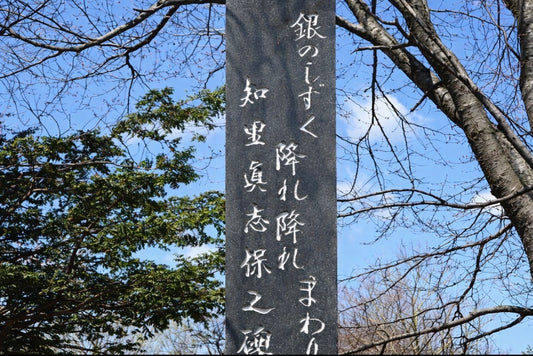 銀のしずく
降れ降れ
まわり
知里眞志保之碑